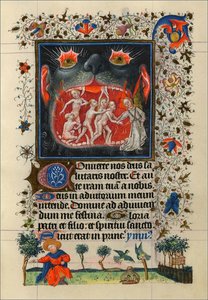 Conuerte nos deus sa
lutaris noster. Et auer
te iram tuā a nobis.
Deus in adiutorium meum
intende. Domine ad adiuuan
dum me festina. Gloria
patri et filio et spiritui sancto
Sicut erat in princ